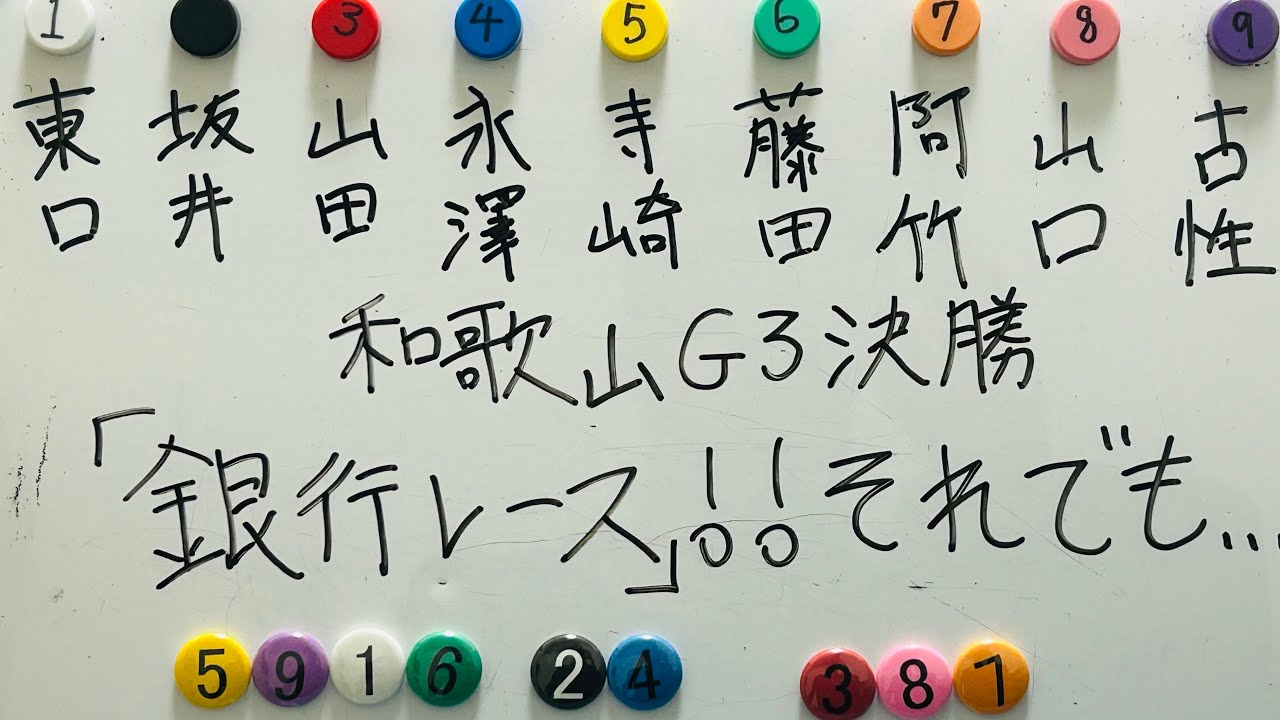 1 3 4 5 6 7 8 9
東口 坂井 山田 永澤 寺崎 藤田 阿竹 山口 古性
和歌山G3決勝
「銀行レース」!!それでも...
5916 24 387